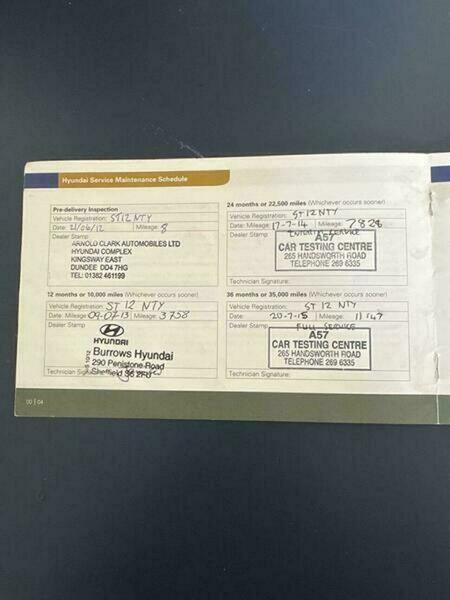 Hyundai Service Maintenance Schedule
Pre-delivery Inspection
Vehicle Registration: ST12 NTY
Date: 21/06/12 Mileage: 8
Dealer Stamp
ARNOLD CLARK AUTOMOBILES LTD
HYUNDAI COMPLEX
KINGSWAY EAST
DUNDEE DD4 7HG
TEL: 01382 461199
12 months or 10,000 miles (Whichever occurs sooner)
Vehicle Registration: ST 12 NTY
Date: Mileage 09-07-13 Mileage: 3758
Dealer Stamp
HYUNDAI
Burrows Hyundai
290 Penistone Road
Sheffield S6 2FU
Technician Signature
24 months or 22,500 miles (Whichever occurs sooner)
Vehicle Registration: ST12 NTY
Date: Mileage: 17-7-14 Mileage: 7828
Dealer Stamp SERVICE
A57
CAR TESTING CENTRE
265 HANDSWORTH ROAD
TELEPHONE 269 6335
Technician Signature:
36 months or 35,000 miles (Whichever occurs sooner)
Vehicle Registration: ST 12 NTY
Date: Mileage: 20-7-15 Mileage: 11147
Dealer Stamp FULL SERVICE
A57
CAR TESTING CENTRE
265 HANDSWORTH ROAD
TELEPHONE 269 6335
Technician Signature:
00 | 04